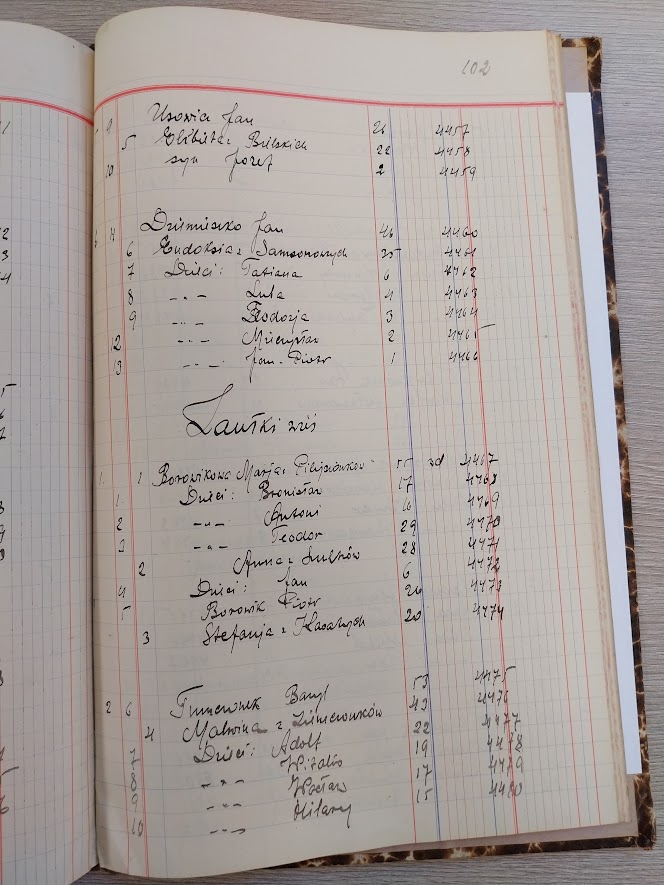 102
9 Usowicz Jan 26 4457
5 Elżbieta z Bilskich 22 4458
10 syn Józef 2 4459
Jan 46 4460
6 Eudoksia z Samsonowych 35 4461
7 Dzieci: Tatiana 6 4462
8 -"- Lula 4 4463
9 -"- Teodozja 3 4464
12 -"- Mieczysław 2 4465
13 -"- Jan-Piotr 1 4466
wieś
1 1 Borowikowa Marja z 55 wd 4467
1 Dzieci: Bronisław 17 4468
2 -"- Antoni 16 4469
3 -"- Teodor 29 4470
2 Anna z 28 4471
4 Dzieci: Jan 6 4472
5 Borowik Piotr 26 4473
3 Stefanja z 20 4474
2 6 Bazyl 53 4475
4 Malwina z 43 4476
7 Dzieci: Adolf 22 4477
8 -"- Witalis 19 4478
9 -"- Wacław 17 4479
10 -"- Hilary 15 4480